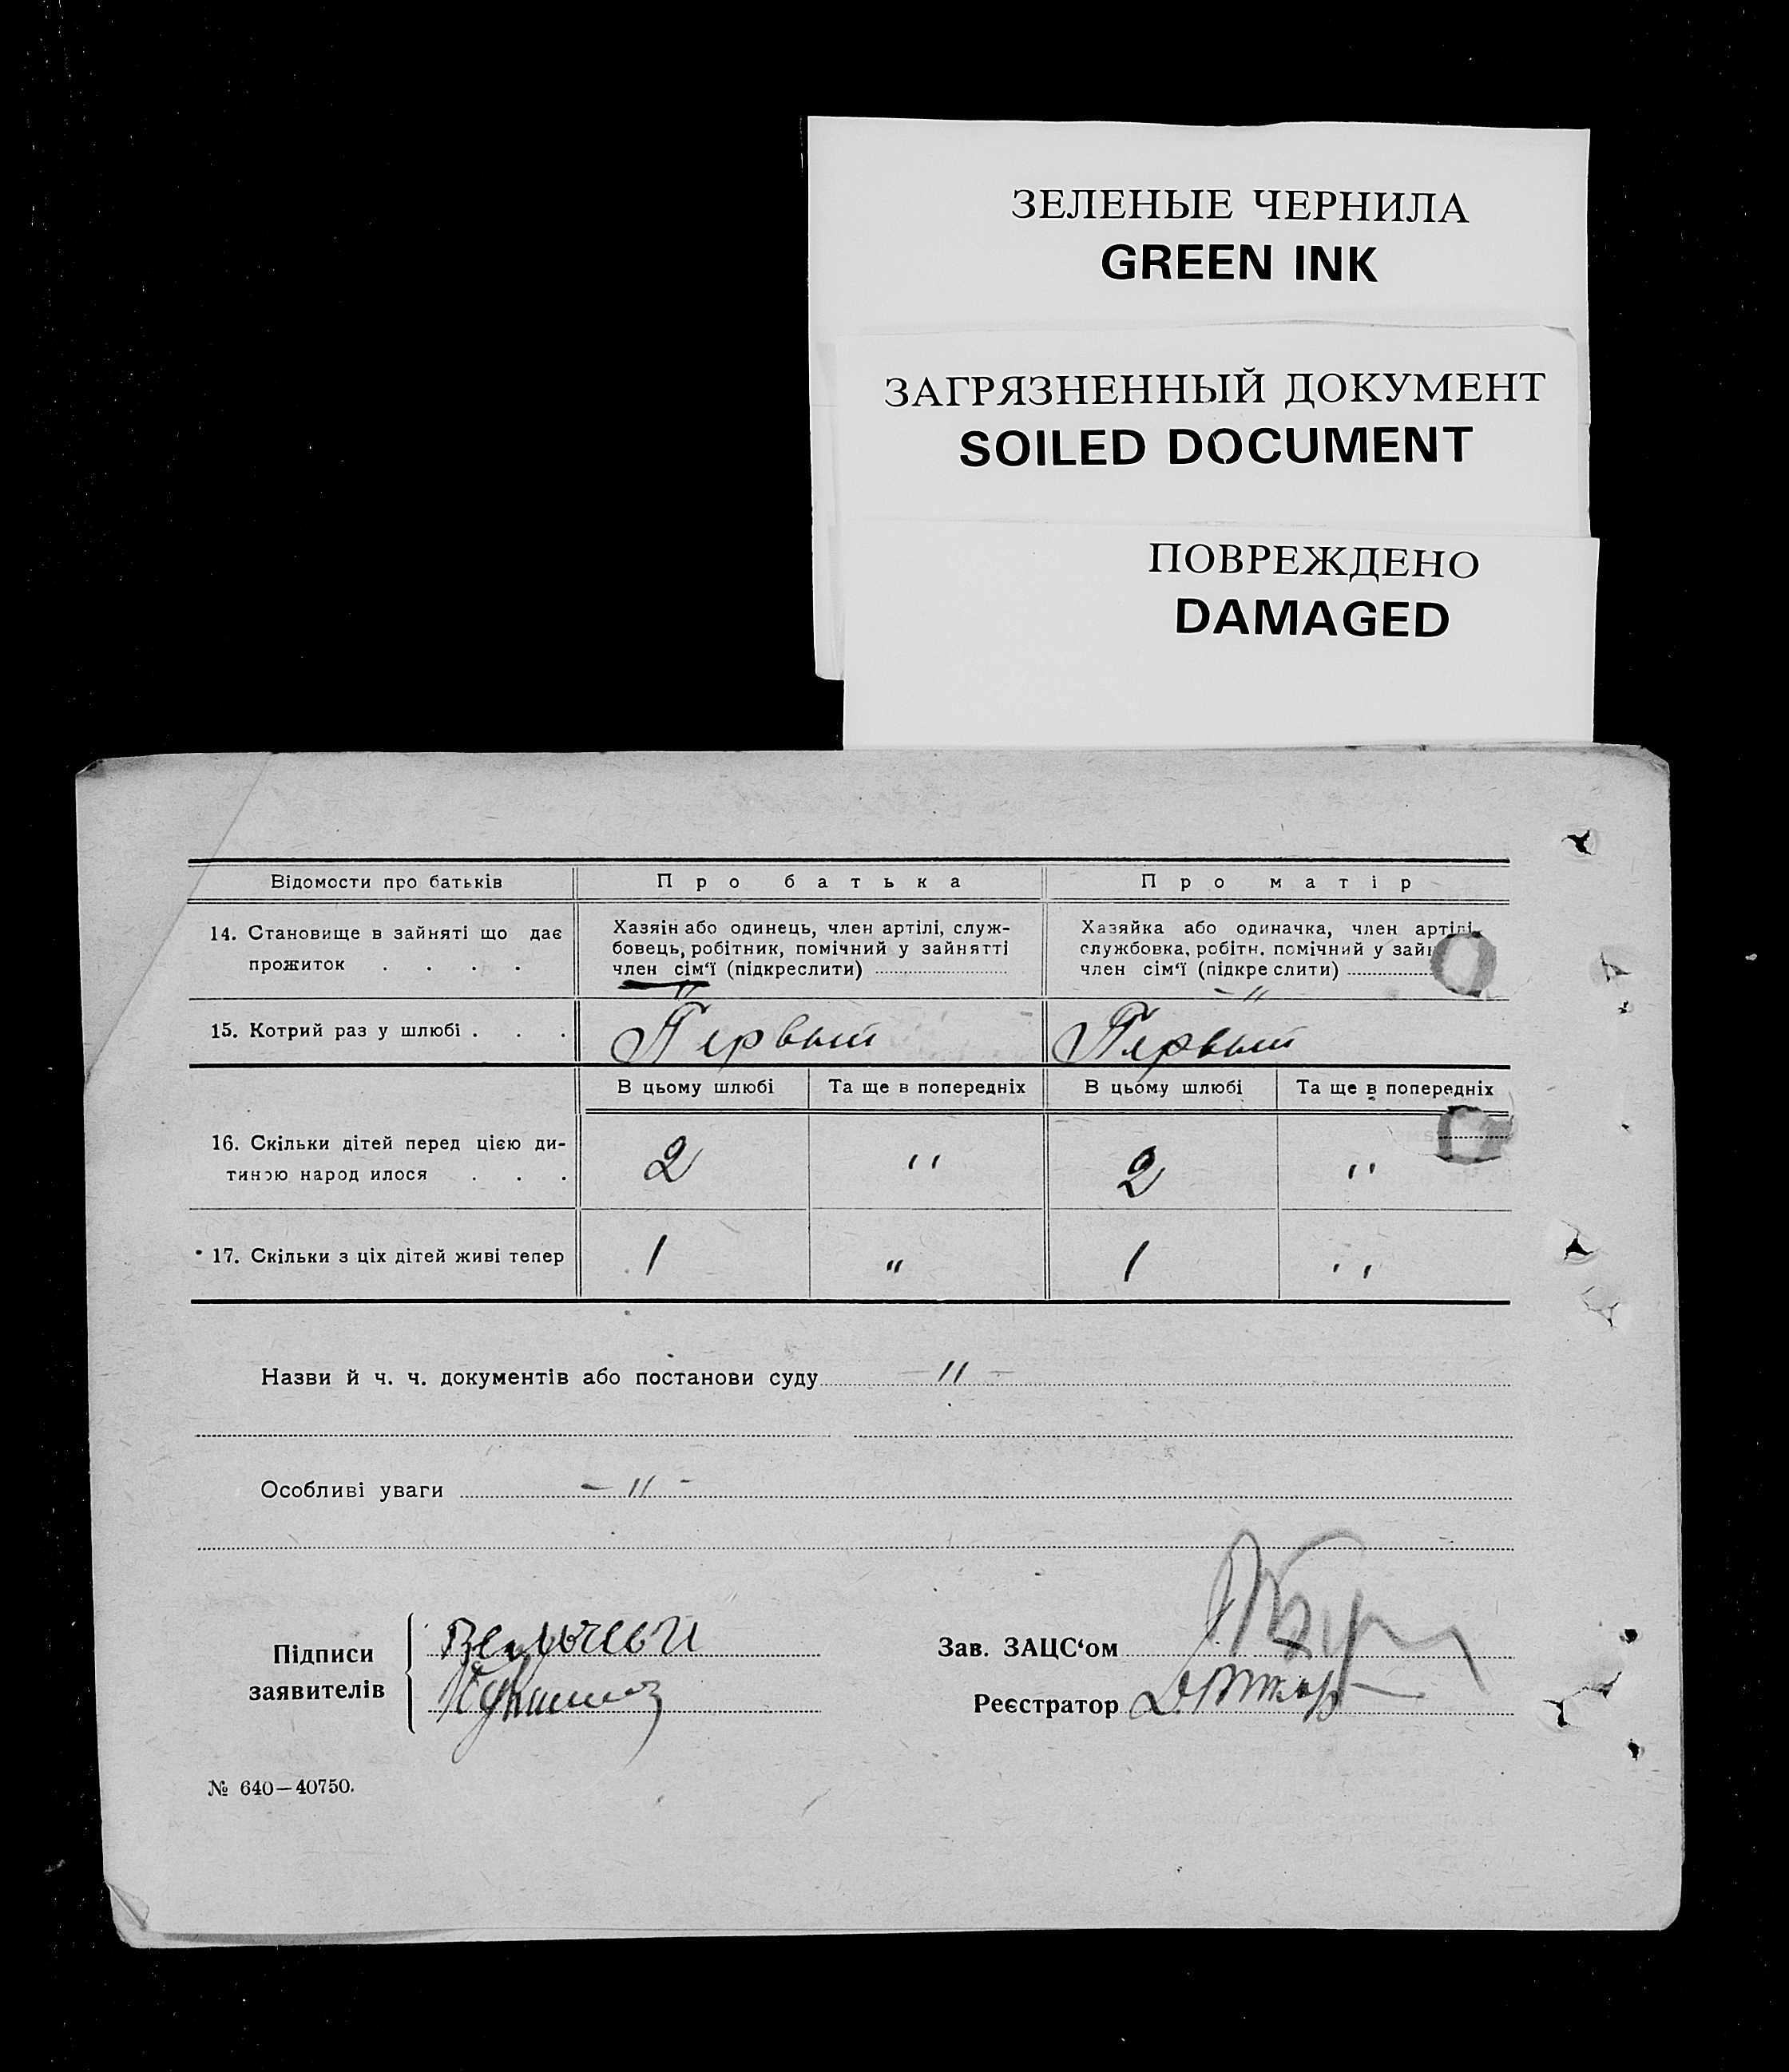 ЗЕЛЕНЫЕ ЧЕРНИЛА
GREEN INK
ЗАГРЯЗНЕННЫЙ ДОКУМЕНТ
SOILED DOCUMENT
ПОВРЕЖДЕНО
DAMAGED
Відомости про батьків Про батька Про матір
14. Становище в зайняті що дає прожиток . . . .
Хазяін або одинець, член артілі, служ-
бовець, робітник, помічний у зайнятті
член сім‘ї (підкреслити)
"
Хазяйка або одиначка, член артілі,
службовка, робітн. помічний у
член сім‘ї (підкреслити)
- " 
15. Котрий раз у шлюбі . . . Первый Первый
В цьому шлюбі Та ще в попередніх В цьому шлюбі Та ще в попередніх
16. Скільки дітей перед цією ди-
тиною народилося . . . 2 " 2 "
17. Скільки з ціх дітей живі тепер 1 " 1 "
Назви й ч. ч. документів або постанови суду - " -
Особливі уваги - " -
Підписи
заявителів
Зав. ЗАЦС‘ом
Реєстратор
№ 640—40750.